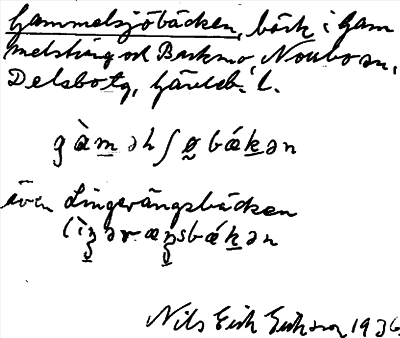 Gammelsjöbäcken, bäck i Gam
melsträng och Backmo, Norrbo sn,
Delsbo tg, Hälsb. l.
gàm̲əlʃø̰bǽk̲ən
även Lingervängsbäcken
lìŋ̲əræŋ̲sbǽk̲ən
Nils Erik Eriksson 1936.